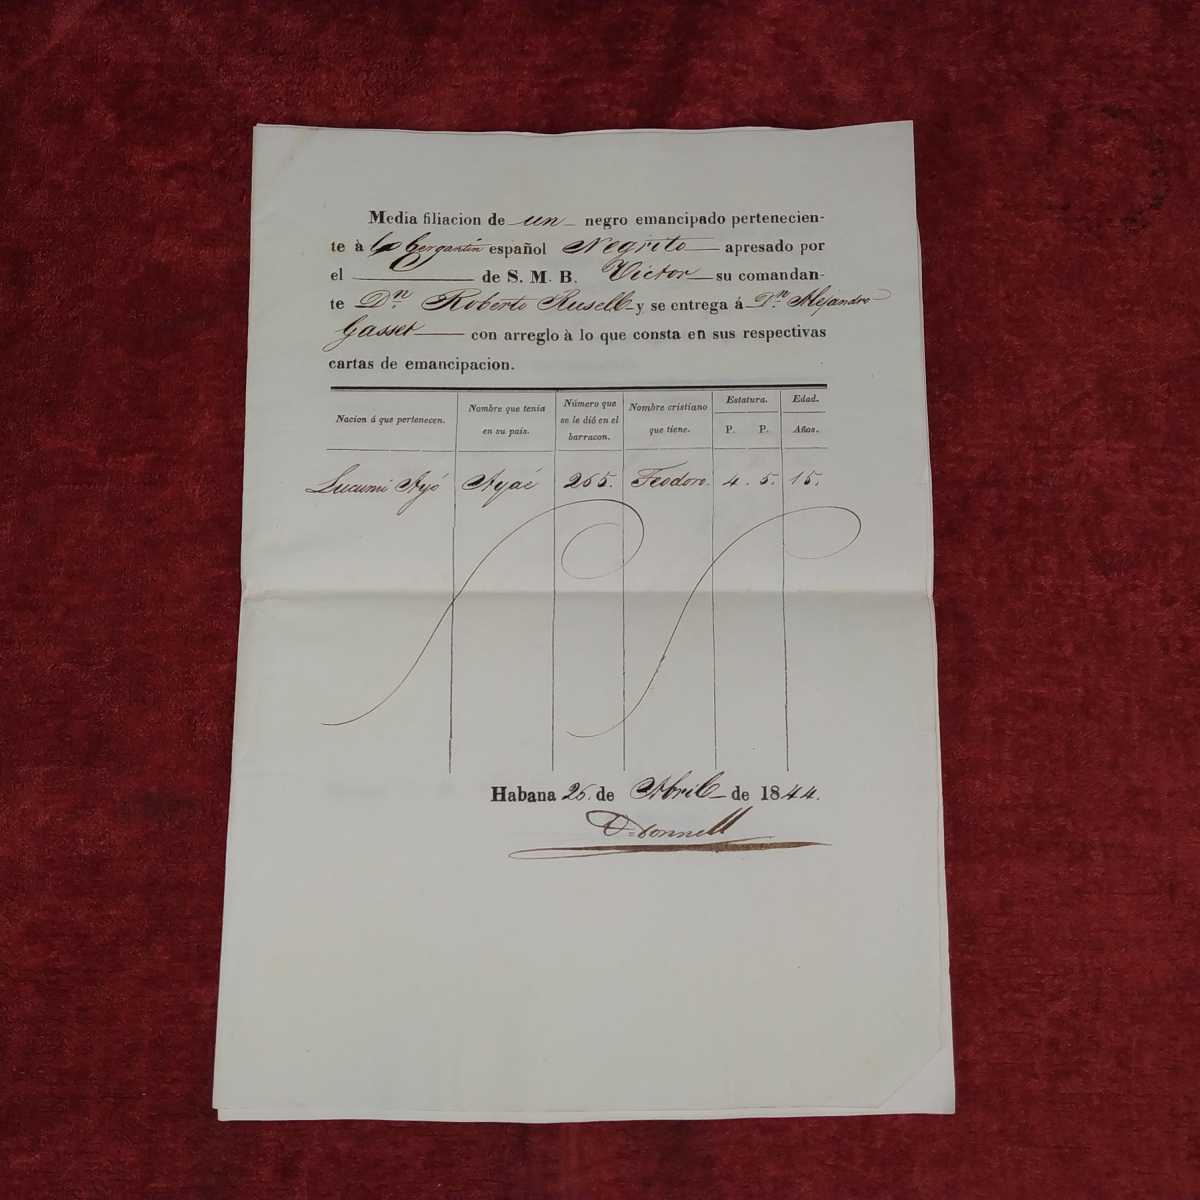 Media filiacion de un negro emancipado pertenecien-
te à bergantin español Negrito apresado por
el de S. M. B. Victor su comandan-
te Dn. Roberto Rusell y se entrega á Dn. Alejandro
Gasset con arreglo à lo que consta en sus respectivas
cartas de emancipacion.
Nacion á que pertenecen. Nombre que tenia en su pais. Número que se le dió en el barracon. Nombre cristiano que tiene. Estatura. P. P. Edad. Años.
Lucumi Ayó Ayaé 265. Feodoro. 4. 5. 15.
Habana 26. de Abril de 1844.
O=Donnell